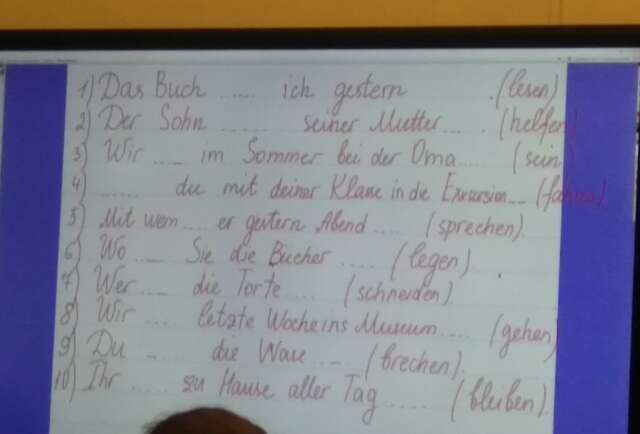 1) Das Buch ..... ich gestern .(lesen)
2) Der Sohn ...... seiner Mutter .... (helfen)
3) Wir .... im Sommer bei der Oma .... (sein)
4) ...... du mit deiner Klasse in die Exkursion ... (fahren)
5) Mit wem .... er gestern Abend .... (sprechen)
6) Wo .... Sie die Bücher ..... (legen)
7) Wer .... die Torte .... (schneiden)
8) Wir .... letzte Woche ins Museum .... (gehen)
9) Du ... die Vase .... (brechen)
10) Ihr ..... zu Hause aller Tag ..... (bleiben)